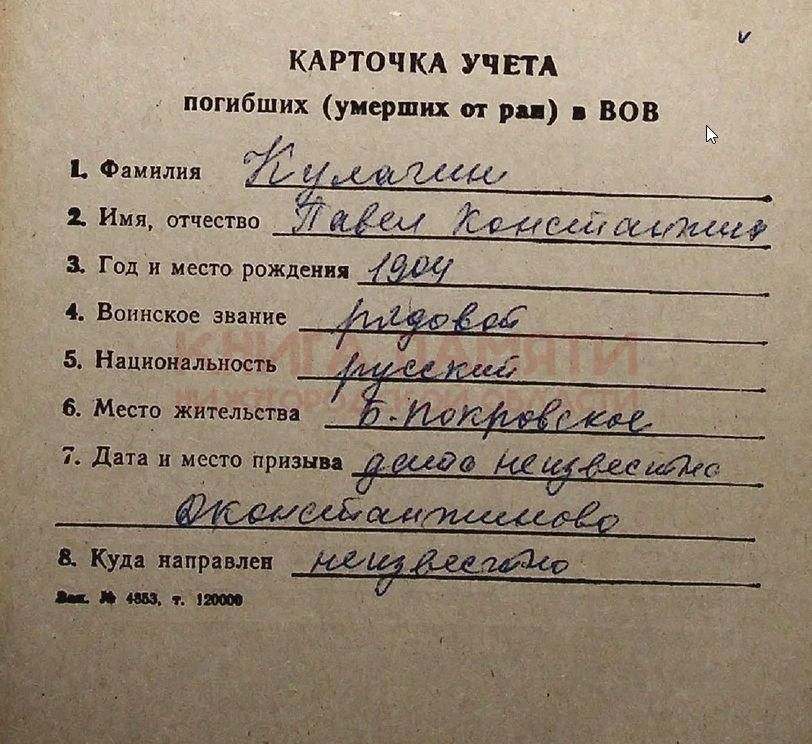 КАРТОЧКА УЧЕТА
погибших (умерших от ран) в ВОВ
1. Фамилия Кулагин
2. Имя, отчество Павел Константино
3. Год и место рождения 1904
4. Воинское звание рядовой
5. Национальность русский
КНИГА ПАМЯТИ
НИЖЕГОРОДСКОЙ ОБЛАСТИ
6. Место жительства Б-Покровское
7. Дата и место призыва дата неизвестна
Дконстантиново
8. Куда направлен неизвестно
Зак. № 4353, т. 120000